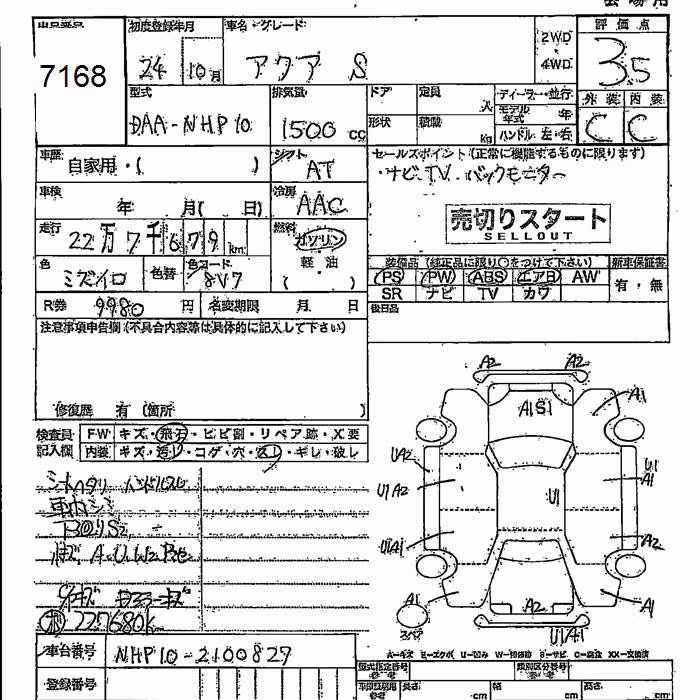 会場用
出品番号 初度登録年月 車名・グレード 2WD・4WD 評価点
7168 24 10月 アクア S 3.5
型式 排気量 ドア 定員 人 ディーラー・並行 外装 内装
DAA-NHP10 1500cc 形状 積載 kg モデル年式 年 ハンドル 左・右 C C
車歴 自家用・( ) シフト AT セールスポイント(正常に機能するものに限ります)
・ナビ TV バックモニター
車検 年 月( 日) 冷房 AAC
売切りスタート
SELLOUT
走行 22万7千679km 燃料 ガソリン
軽・油
( )
色 ミズイロ 色替 色コード 8V7
装備品(純正品に限り○をつけて下さい) 新車保証書
PS PW ABS エアB AW 有・無
SR ナビ TV カワ
R券 9980円 名変期限 月 日 後日品
注意事項申告欄(不具合内容等は具体的に記入して下さい)
修復歴 有(箇所 )
検査員記入欄 FW キズ・飛石・ヒビ割・リペア跡・X要
内装 キズ・汚レ・コゲ・穴・スレ・キレ・破レ
シートヘタリ ハンドルスレ
車内
A2 A2
A1S1 A1
UA2 U1 A1
U1A2 U1
U1A1 A2
A1 A2 A1
スペア U1A1
227680k
A-キズ E-エクボ U-凹み W-補修跡 S-サビ C-腐食 XX-交換済
車台番号 NHP10-2100827
型式指定番号 類別区分番号
登録番号 長さ cm 幅 cm 高さ cm